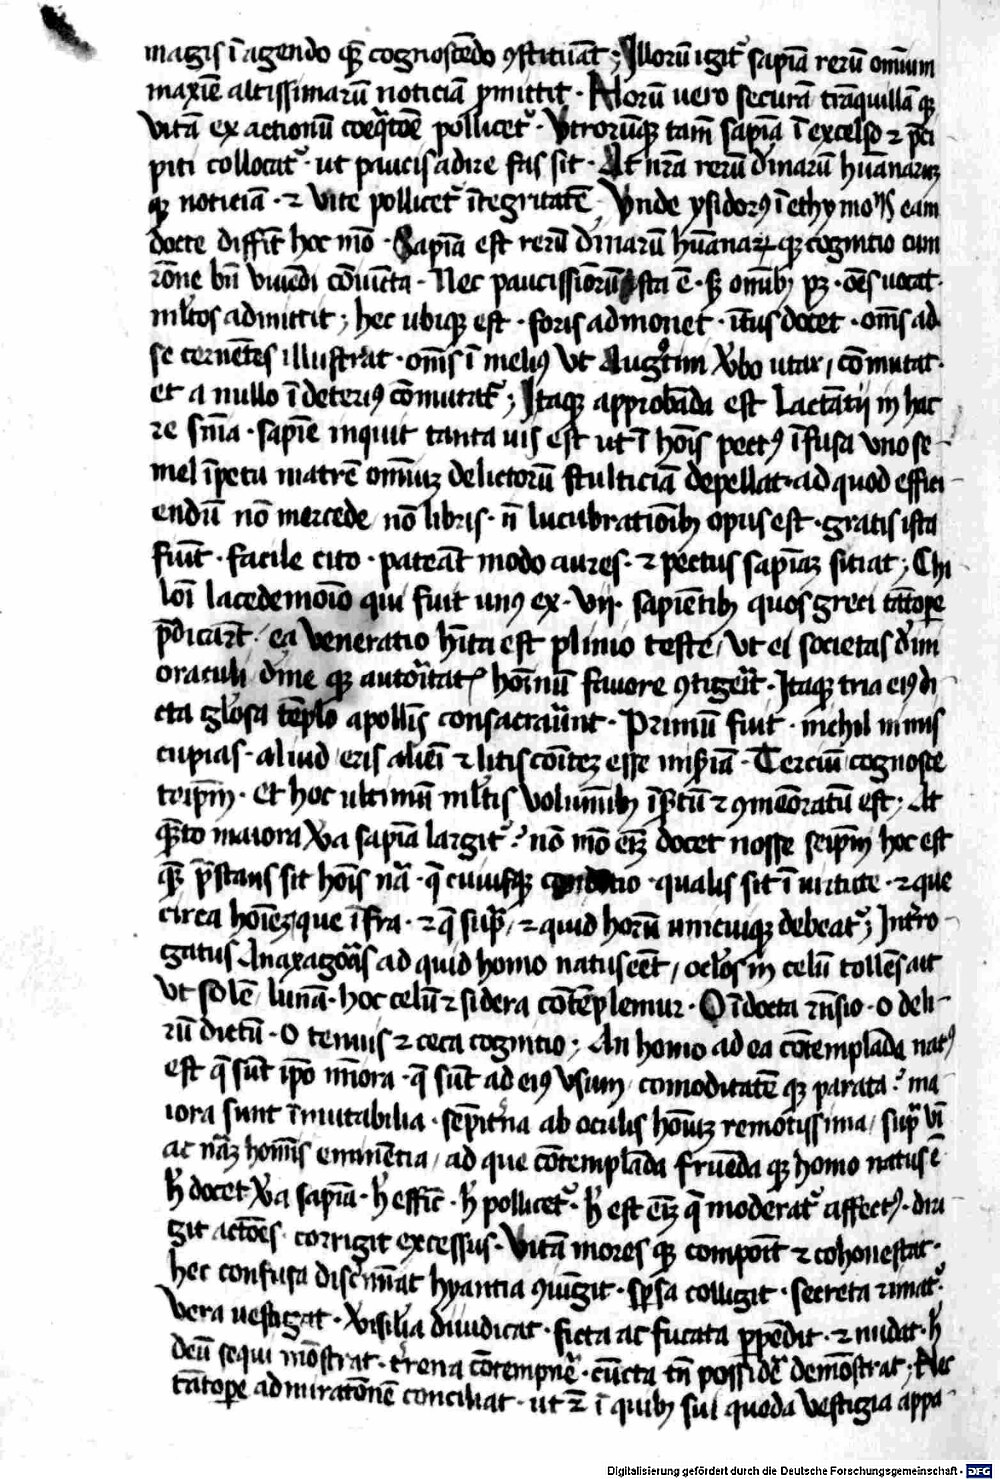 magis ī agendo qȝ cognoscēdo ꝯstituāt ; Illorū igit᷑ sapīa rerū om̄ium
maxīe altissimarū noticiā ꝓmittit · Alorū vero securā trāquillā qȝ
vitā ex actionū coeq̄tōe pollicet᷑ · Vtrorūqȝ tam̄ sapīa ī excelso ⁊ p̄ci
piti collocat᷑ · ut paucis adire fas sit · At nr̄a rerū diuīarū hūanarūȝ
qȝ noticiā · ⁊ vite pollicet᷑ ītegritatē · Vnde ysidorꝰ ī ethymoˡⁱⁱˢ eam
docte diffīt hoc mō · Sapīa est rerū diuīarū hūanaꝝ qȝ cognitio cum
rōne bn̄ viuēdi cōiūcta · Nec paucissīorū ista ē · sȝ om̄ibȝ pȝ · oēs uocat ·
ml̄tos admittit ; hec ubiqȝ est · foris admonet · ītus docet · om̄s ad
se cernētes illustrat · om̄s ī meliꝰ vt Augᵒtīni v̄bo utar / cōmutat ·
et a nullo ī deteriꝰ cōmutat᷑ ; Itaqȝ approbāda est Lactātij in hac
re sn̄ia · sapīe inquit tanta uis est ut ī hoīs pectꝰ īfusa vno se-
mel īpetu matrē om̄iuȝ delictorū stulticiā depellat · ad quod effici-
endū nō mercede nō libris · n̄ lucubratiōibȝ opus est · gratis ista
fiūt · facile cito · pateāt modo aures · ⁊ pectus sapīaȝ sitiat ; Chi
loī lacedemoīo qui fuit unꝰ ex · vij · sapiētibȝ quos greci tātope
p̄dicāt · ea veneratio h̄ita est plinio teste / vt ei societas diuī
oraculi diuīe qȝ autoītat᷑ hoīnū favore ꝯtigeīt · Itaqȝ tria eiꝰ di
cta gl̄osa tēplo apollīs consacrauēt · Primū fuit · nichil nimis
cupias · aliud eris alieī ⁊ litis cōiteȝ esse miſīā · Tercīu cognosce
teip̄m · Et hoc ultimū ml̄tis voluīnibȝ īsp̄tū ⁊ ꝯmēoratū est ; At
qȝto maiora v̄a sapīa largit᷑ ? nō mō eīȝ docet nosse seip̄m hoc est
qȝ p̄stans sit hoīs nā · q̄ cuiusqȝ conditio · qualis sit ī uirtute · ⁊ que
circa hoīeȝ que īfra · ⁊ q̄ sup̄ / ⁊ quid horū unicuiqȝ debeat᷑ ; Int̄ro-
gatus Anaxagōas ad quid homo natus eēt / oclos in celū tollēs ait
Vt solē / lunā · hoc celū ⁊ sidera cōtēplemur · O īdocta rn̄sio · o deli-
rū dictū · O tenuis ⁊ ceca cognitio ; An homo ad ea cōtemplāda natꝰ
est q̄ sūt ip̄o mīora · q̄ sūt ad eiꝰ vsum / comoditatē qȝ parata ? ma-
iora sunt īmutabilia · sēpit̄na ab oculis hoīuȝ remotissima / supra vī
ac nāȝ homīs eminētia / ad que cōtemplāda fruēda qȝ homo natus ē
h̄ docet v̄a sapīa · h̄ effic̄ · h̄ pollicet᷑ · h̄ est eīȝ q̄ moderat᷑ affectꝰ · diri-
git actōes · corrigit excessus · Vitā mores qȝ compoīt ⁊ cohonestat ·
hec confusa disc̄minat hyantia ꝯiūgit · sp̄sa colligit · secreta rimat᷑ ·
vera uestigat · v̄isilia diiudicat · ficta ac fucata ꝑpēdit · ⁊ nudat · h̄
deū sequi mōstrat · t̄rena cōtempne᷑ · cūcta tn̄ posside᷑ demōstrat ; Nec
tātope admiratōnē conciliat · ut ⁊ ī quibȝ sui queda vestigia appa-
Digitalisierung gefördert durch die Deutsche Forschungsgemeinschaft - DFG